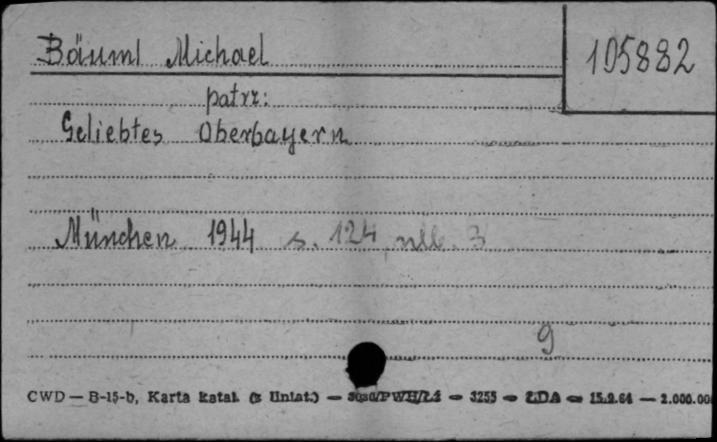 Bäuml Michael
105882
patrz:
Geliebtes Oberbayern
München 1944 s. 124, nlb. 3
9
CWD — B-15-b, Karta katal. (z Uniat.) — — 3255 — ŁDA — 15.9.64 — 2.000.00